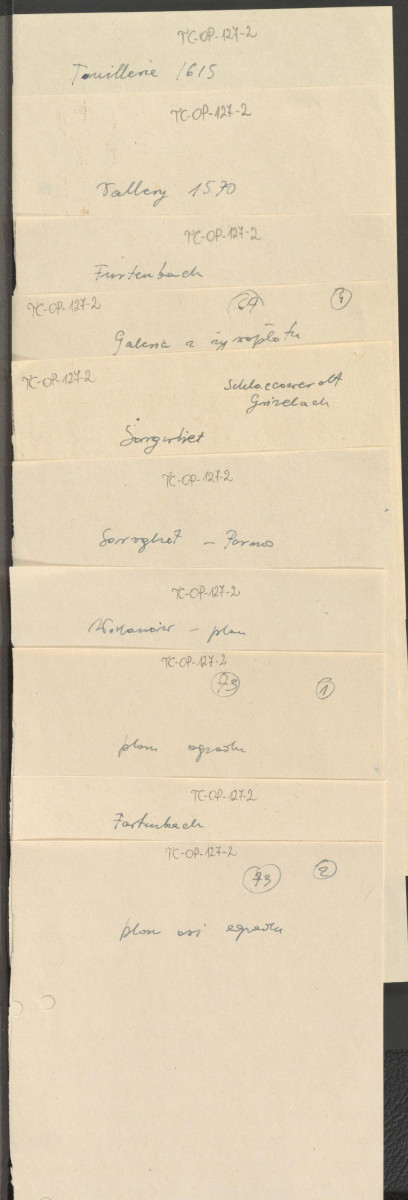 TC-OP-127-2
Touillerie 1615
TC-OP-127-2
Vallery 1570
TC-OP-127-2
Furtenbach
TC-OP-127-2
67
Galeria z żywopłotu
TC-OP-127-2
Grizelach
TC-OP-127-2
TC-OP-127-2
plan
TC-OP-127-2
73
1
plan ogrodu
TC-OP-127-2
Furtenbach
TC-OP-127-2
73
2
plan osi ogrodu